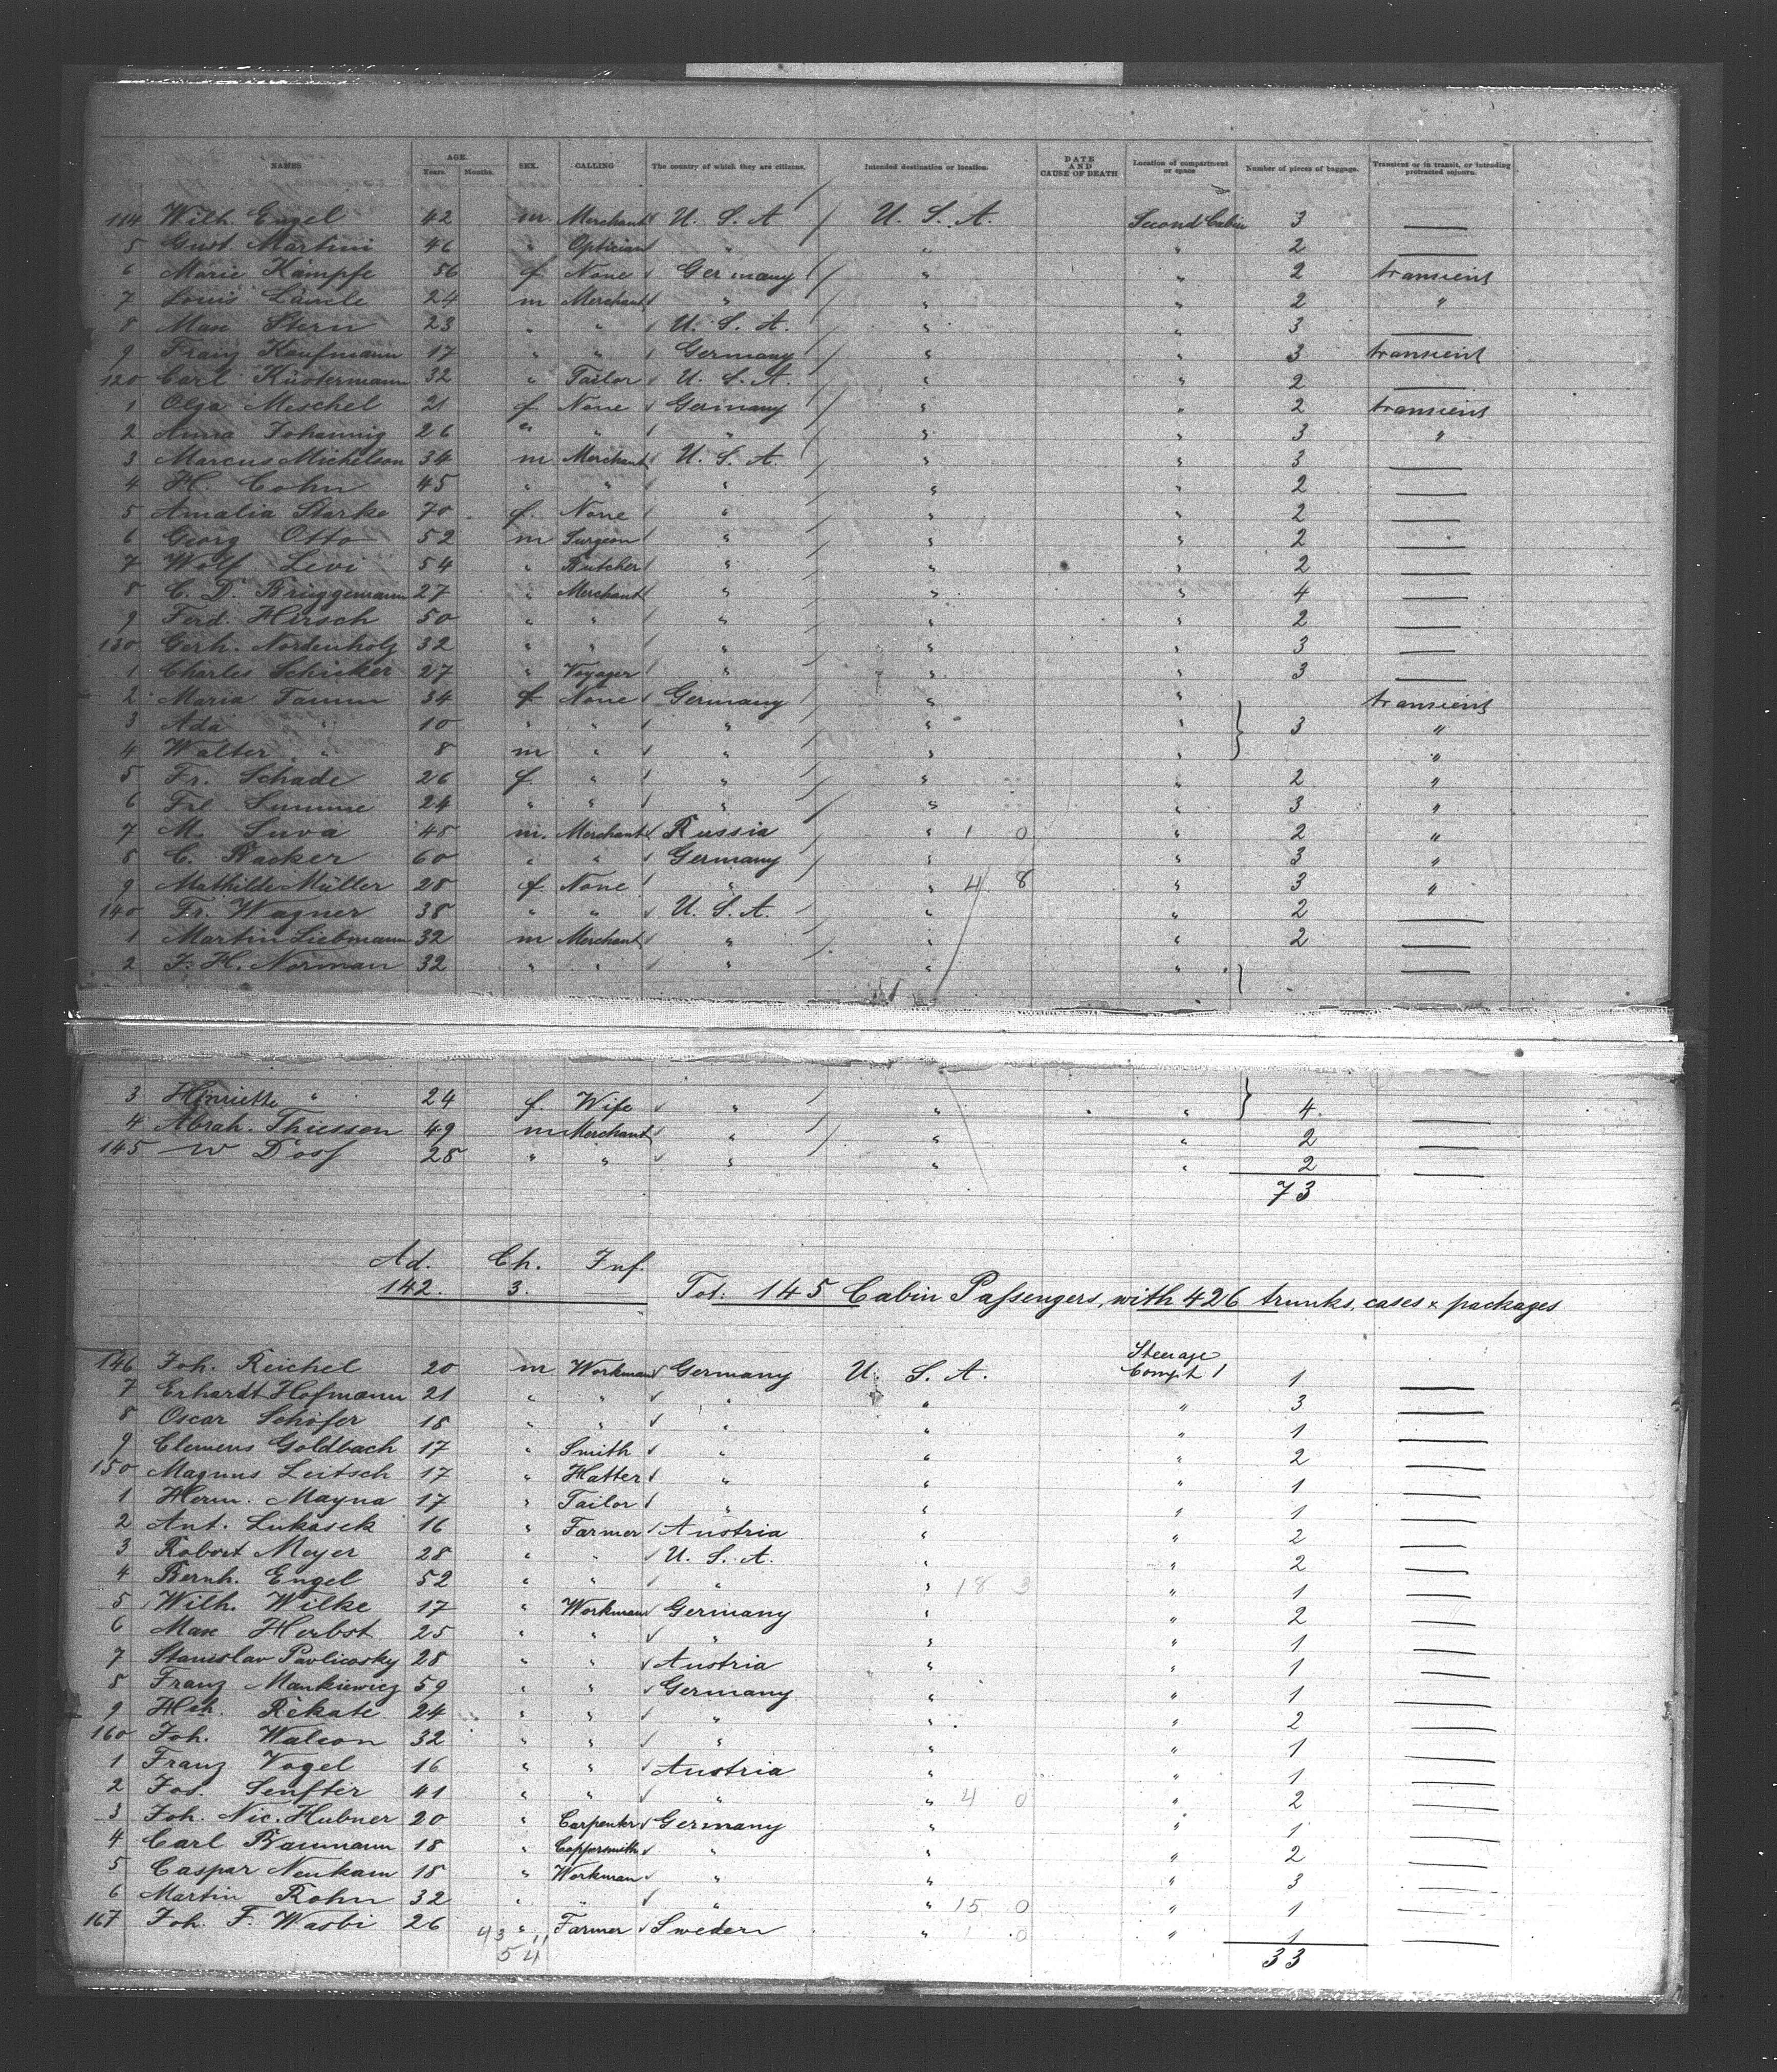 NAMES AGE. Years. Months. SEX. CALLING The country of which they are citizens. Intended destination or location. DATE AND CAUSE OF DEATH Location of compartment or space Number of pieces of baggage. Transient or in transit, or intending protracted sojourn.
114 Wilh. Engel 42 m. Merchant U. S. A U. S. A. Second Cabin 3 —
5 Gust. Martini 46 " Optician " " " 2 —
6 Marie Kämpfe 56 f. None Germany " " 2 transient
7 Louis 24 m Merchant " " " 2 "
8 Max Stern 23 " " U. S. A. " " 3 —
9 Franz Kaufmann 17 " " Germany " " 3 transient
120 Carl Küstermann 32 " Tailor U. S. A. " " 2 —
1 Olga Meschel 21 f. None Germany " " 2 transient
2 Anna Johannig 26 " " " " " 3 "
3 Marcus Michelson 34 m Merchant U. S. A. " " 3 —
4 H. Cohn 45 " " " " " 2 —
5 Amalia Starke 70 f. None " " " 2 —
6 Georg Otto 52 m Surgeon " " " 2 —
7 Wolf Levi 54 " Butcher " " " 2 —
8 C. D. Brüggemann 27 " Merchant " " " 4 —
9 Ferd. Hirsch 50 " " " " " 2 —
130 Gerh. Nordenholz 32 " " " " " 3 —
1 Charles Schicker 27 " Voyager " " " 3 —
2 Maria Tamm 34 f None Germany " " transient
3 Ada " 10 " " " " " } 3 "
4 Walter " 8 m " " " " "
5 Fr. Schade 26 f. " " " " 2 "
6 Frl. 24 " " " " " 3 "
7 M. Suva 48 m. Merchant Russia " 1 0 " 2 "
8 C. Backer 60 " " Germany " " 3 "
9 Mathilde Müller 28 f. None " " 4 8 " 3 "
140 Fr. Wagner 38 " " U. S. A. " " 2 —
1 Martin Liebmann 32 m Merchant " " " 2 —
2 J. H. Norman 32 " " " " " } —
3 Henriette " 24 f. Wife " " " } 4 —
4 Abrah. Thiessen 49 m Merchant " " " 2 —
145 W Doss 28 " " " " " 2 —
73
Ad. Ch. Inf.
142. 3. — Tot. 145 Cabin Passengers, with 426 trunks, cases & packages
146 Joh. Reichel 20 m Workman Germany U. S. A. Steerage Compt 1 1 —
7 Erhardt Hofmann 21 " " " " " 3 —
8 Oscar Schöfer 18 " " " " " 1 —
9 Clemens Goldbach 17 " Smith " " " 2 —
150 Magnus Leitsch 17 " Hatter " " " 1 —
1 Herm. Mayna 17 " Tailor " " " 1 —
2 Ant. Lukasek 16 " Farmer Austria " " 2 —
3 Robert Meyer 28 " " U. S. A. " " 2 —
4 Bernh. Engel 52 " " " " 18 3 " 1 —
5 Wilh. Wilke 17 " Workman Germany " " 2 —
6 Max Herbst 25 " " " " " 1 —
7 Stanislav Pavlicosky 28 " " Austria " " 1 —
8 Franz Mankiewicz 59 " " Germany " " 1 —
9 Hch. Rekate 24 " " " " " 2 —
160 Joh. Walcon 32 " " " " " 1 —
1 Franz Vogel 16 " " Austria " " 1 —
2 Jos. Senftir 41 " " " " 4 0 " 2 —
3 Joh. Nic. Hubner 20 " Carpenter Germany " " 1 —
4 Carl Baumann 18 " Coppersmith " " " 2 —
5 Caspar Neukam 18 " Workman " " " 3 —
6 Martin Rohn 32 " " " " 15 0 " 1 —
167 Joh. F. Wasbi 26 43 " 11 Farmer Sweden " 1 0 " 1 —
54 33